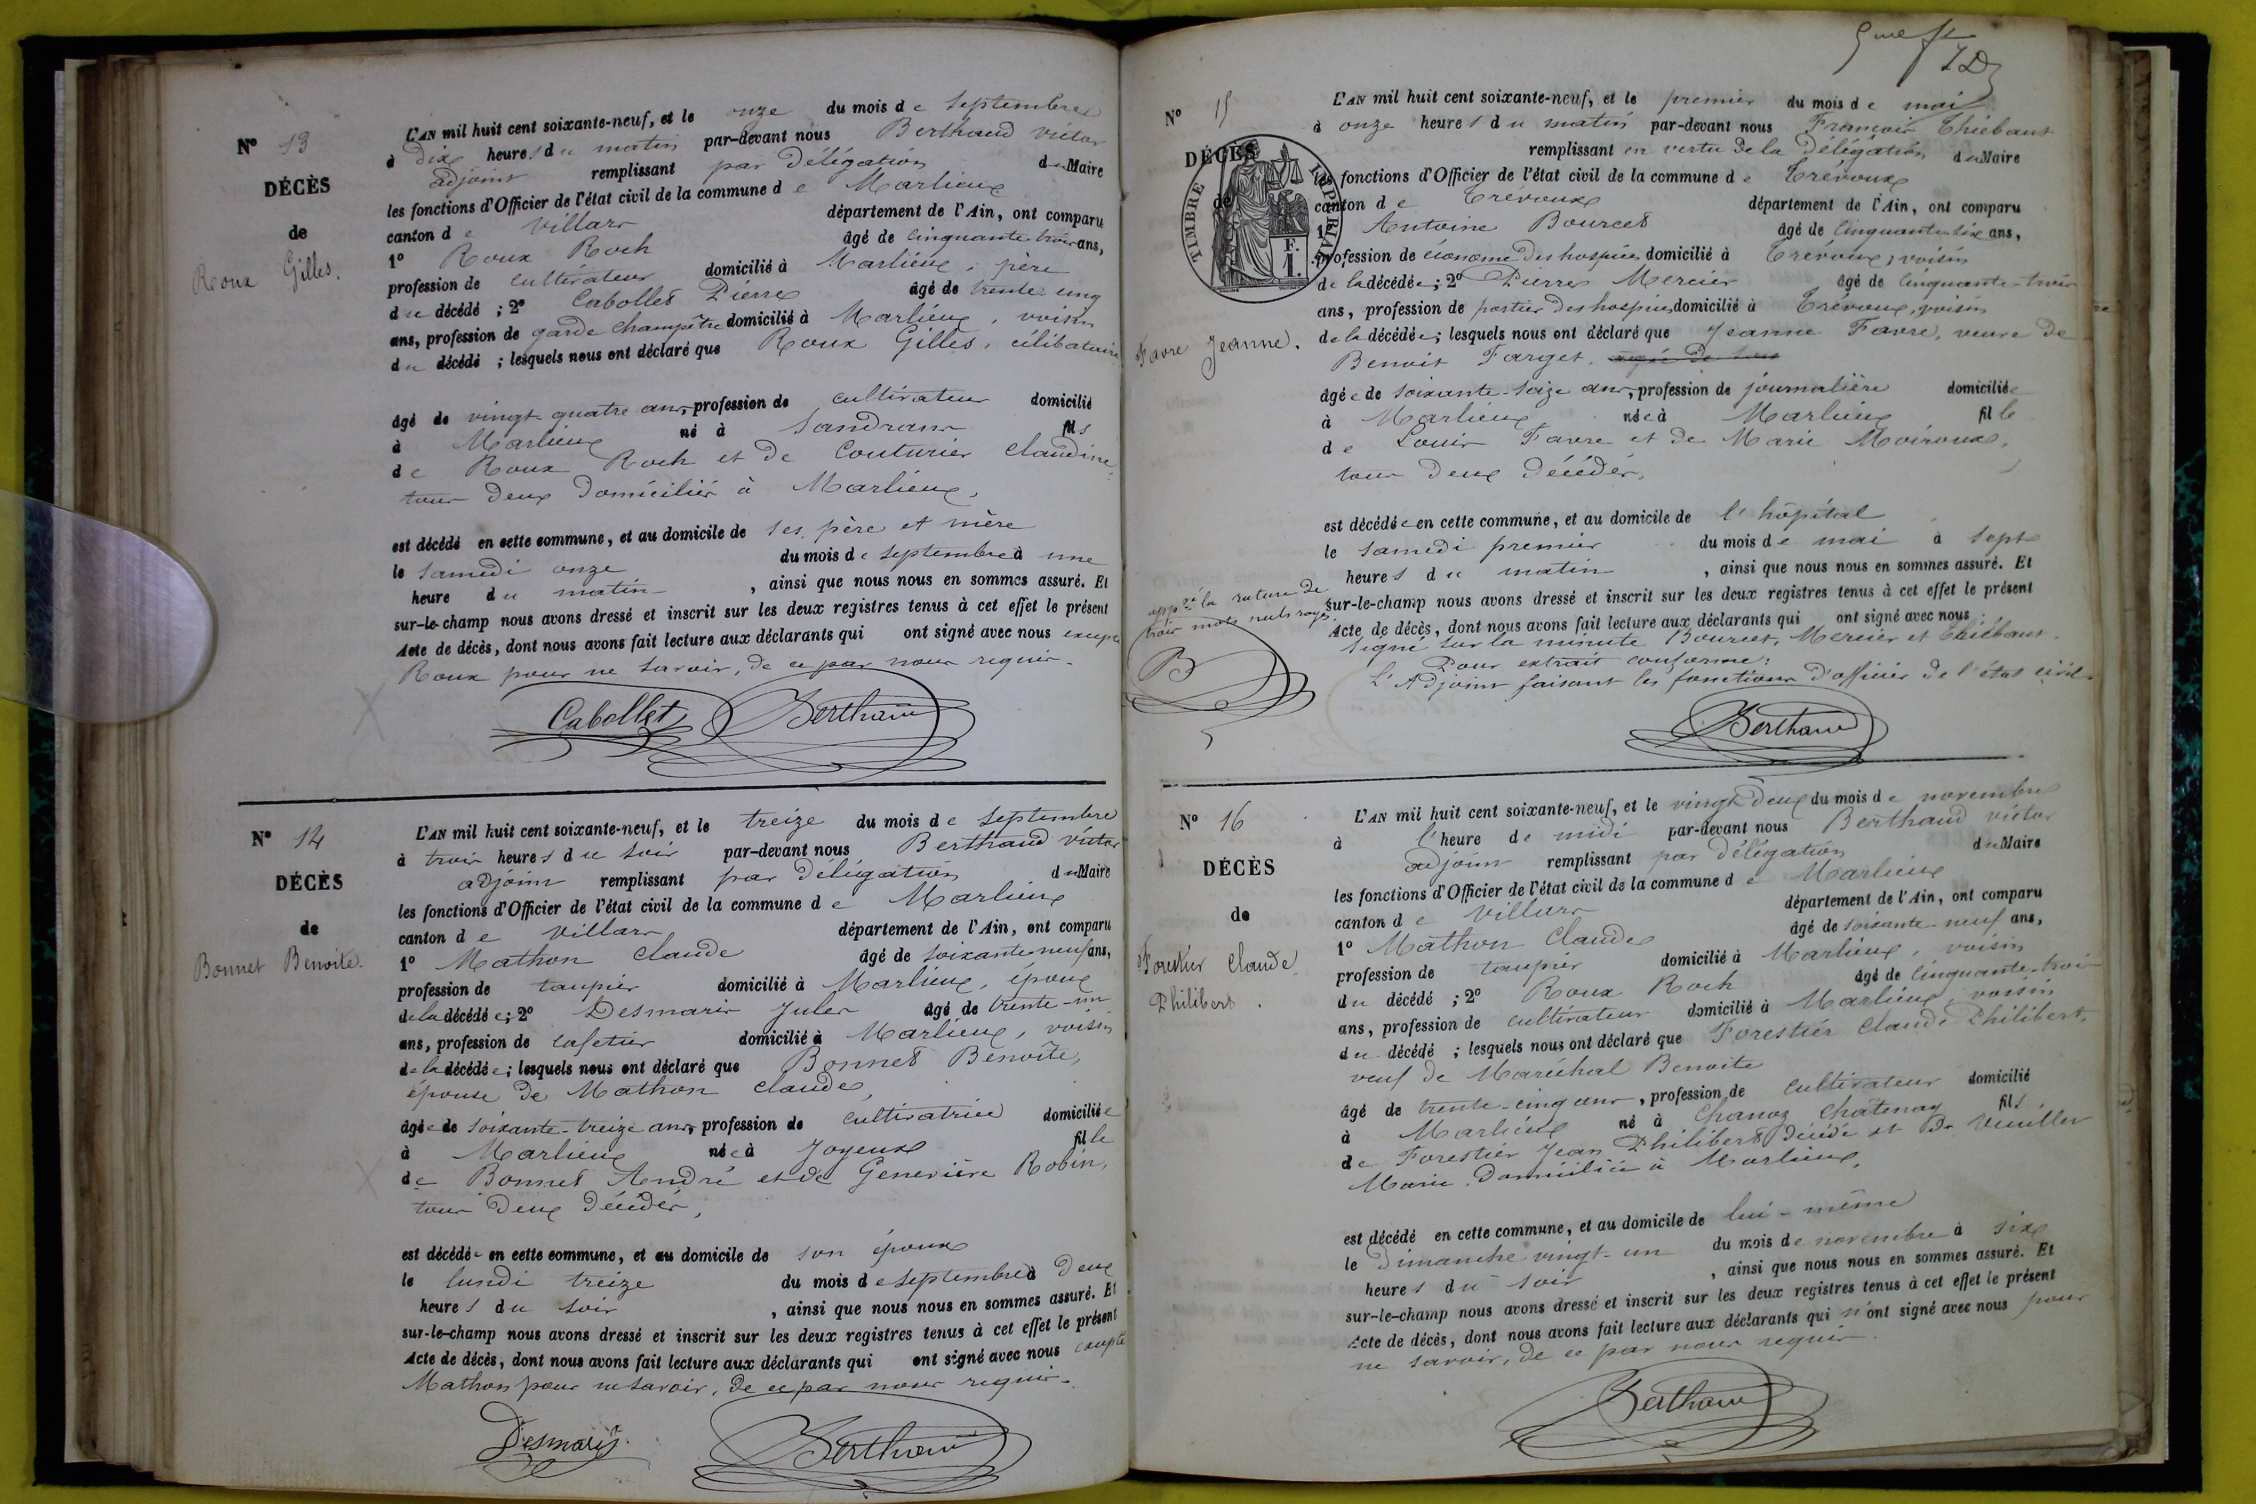 N° 13
DÉCÈS
de
Roux Gilles.
L'AN mil huit cent soixante-neuf, et le onze du mois de septembre
à dix heures du matin par-devant nous Berthaud victor
adjoint remplissant par délégation du Maire
les fonctions d'Officier de l'état civil de la commune de Marlieux
canton de Villars département de l'Ain, ont comparu
1° Roux Roch âgé de cinquante trois ans,
profession de cultivateur domicilié à Marlieux, père
du décédé ; 2° Cabollet Pierre âgé de trente cinq
ans, profession de garde champêtre domicilié à Marlieux, voisin
du décédé ; lesquels nous ont déclaré que Roux Gilles, célibataire
âgé de vingt-quatre ans, profession de cultivateur domicilié
à Marlieux né à Sandrans fils
de Roux Roch et de Couturier Claudine,
tous deux domiciliés à Marlieux,
est décédé en cette commune, et au domicile de ses père et mère
le samedi onze du mois de septembre à une
heure du matin, ainsi que nous nous en sommes assuré. Et
sur-le-champ nous avons dressé et inscrit sur les deux registres tenus à cet effet le présent
Acte de décès, dont nous avons fait lecture aux déclarants qui ont signé avec nous excepté
Roux pour ne savoir, de ce par nous requis.
Cabollet Berthaud
N° 14
DÉCÈS
de
Bonnet Benoite.
L'AN mil huit cent soixante-neuf, et le treize du mois de septembre
à trois heures du soir par-devant nous Berthaud victor
adjoint remplissant par délégation du Maire
les fonctions d'Officier de l'état civil de la commune de Marlieux
canton de Villars département de l'Ain, ont comparu
1° Mathon Claude âgé de soixante neuf ans,
profession de taupier domicilié à Marlieux, époux
de la décédée ; 2° Desmaris Jules âgé de trente-un
ans, profession de cafetier domicilié à Marlieux, voisin
de la décédée ; lesquels nous ont déclaré que Bonnet Benoîte,
épouse de Mathon Claude,
âgée de soixante-treize ans, profession de cultivatrice domiciliée
à Marlieux née à Joyeux fille
de Bonnet André et de Geneviève Robin,
tous deux décédés,
est décédée en cette commune, et au domicile de son époux
le lundi treize du mois de septembre à deux
heures du soir, ainsi que nous nous en sommes assuré. Et
sur-le-champ nous avons dressé et inscrit sur les deux registres tenus à cet effet le présent
Acte de décès, dont nous avons fait lecture aux déclarants qui ont signé avec nous excepté
Mathon pour ne savoir, de ce par nous requis.
Desmaris Berthaud
N° 15
DÉCÈS
de
TIMBRE IMPÉRIAL
F. I.
Favre Jeanne.
L'AN mil huit cent soixante-neuf, et le premier du mois de mai
à onze heures du matin par-devant nous François Thiébaut
remplissant en vertu de la délégation du Maire
les fonctions d'Officier de l'état civil de la commune de Trévoux
canton de Trévoux département de l'Ain, ont comparu
1° Antoine Bourcet âgé de cinquante six ans,
profession de économe des hospices domicilié à Trévoux, voisin
de la décédée ; 2° Pierre Mercier âgé de cinquante-trois
ans, profession de portier des hospices domicilié à Trévoux, voisin
de la décédée ; lesquels nous ont déclaré que Jeanne Favre, veuve de
Benoit Farget,
âgée de soixante-seize ans, profession de journalière domiciliée
à Marlieux née à Marlieux fille
de Louis Favre et de Marie Moiroux,
tous deux décédés,
est décédée en cette commune, et au domicile de l'hôpital
le samedi premier du mois de mai à sept
heures du matin, ainsi que nous nous en sommes assuré. Et
sur-le-champ nous avons dressé et inscrit sur les deux registres tenus à cet effet le présent
Acte de décès, dont nous avons fait lecture aux déclarants qui ont signé avec nous.
Signé sur la minute Bourcet, Mercier et Thiébaut.
Pour extrait conforme:
L'Adjoint faisant les fonctions d'officier de l'état civil.
Berthaud
la rature de
trois mots nuls rayés.
B
N° 16
DÉCÈS
de
Forestier Claude
Philibert.
L'AN mil huit cent soixante-neuf, et le vingt deux du mois de novembre
à l'heure de midi par-devant nous Berthaud victor
adjoint remplissant par délégation du Maire
les fonctions d'Officier de l'état civil de la commune de Marlieux
canton de Villars département de l'Ain, ont comparu
1° Mathon Claude âgé de soixante-neuf ans,
profession de taupier domicilié à Marlieux, voisin
du décédé ; 2° Roux Roch âgé de cinquante-trois
ans, profession de cultivateur domicilié à Marlieux, voisin
du décédé ; lesquels nous ont déclaré que Forestier Claude Philibert,
veuf de Maréchal Benoite
âgé de trente-cinq ans, profession de cultivateur domicilié
à Marlieux né à Chanoz Chatenay fils
de Forestier Jean Philibert décédé et De Vuiller
Marie domiciliée à Marlieux,
est décédé en cette commune, et au domicile de lui-même
le Dimanche vingt-un du mois de novembre à six
heures du soir, ainsi que nous nous en sommes assuré. Et
sur-le-champ nous avons dressé et inscrit sur les deux registres tenus à cet effet le présent
Acte de décès, dont nous avons fait lecture aux déclarants qui n'ont signé avec nous pour
ne savoir, de ce par nous requis.
Berthaud